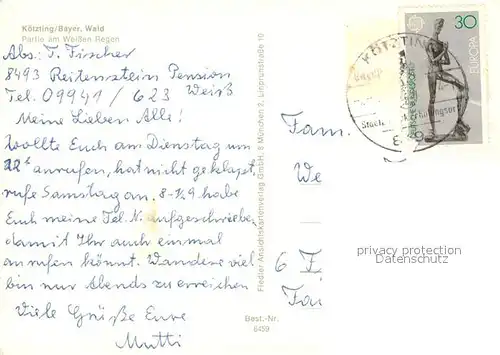 Kötzting/Bayer. Wald
Partie am Weißen Regen
Abs: T. Fischer
8493 Reitenstein Pension
Tel. 09941 / 623 Weiß
Meine Lieben Alle!
Wollte Euch am Dienstag um
anrufen, hat nicht geklappt,
rufe Samstag an. 8-½9 habe
Euch meine Tel. N. aufgeschrieben
damit Ihr auch einmal
anrufen könnt. Wandere viel
bin nur Abends zu erreichen
Viele Grüße Eure
Mutti
Fiedler Ansichtskartenverlag GmbH, 8 München 2, Linprunstraße 10
Best.-Nr.
8459
30
EUROPA
KÖTZTING
Fam.
We
6
Fa
privacy protection
Datenschutz